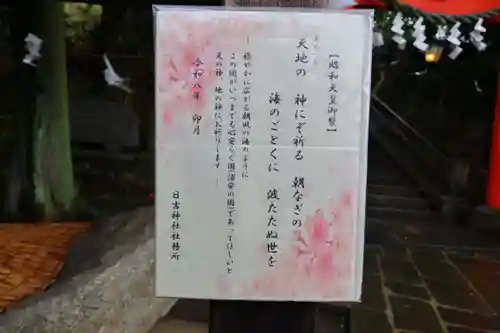 【昭和天皇御製】
あめつち
天地の 神にぞ祈る 朝なぎの
海のごとくに 波たたぬ世を
―穏やかに広がる朝凪の海のように
この国がいつまでも心安らぐ国(浦安の国)であってほしいと
天の神、地の神にお祈りします―
令和八年 卯月
日吉神社社務所